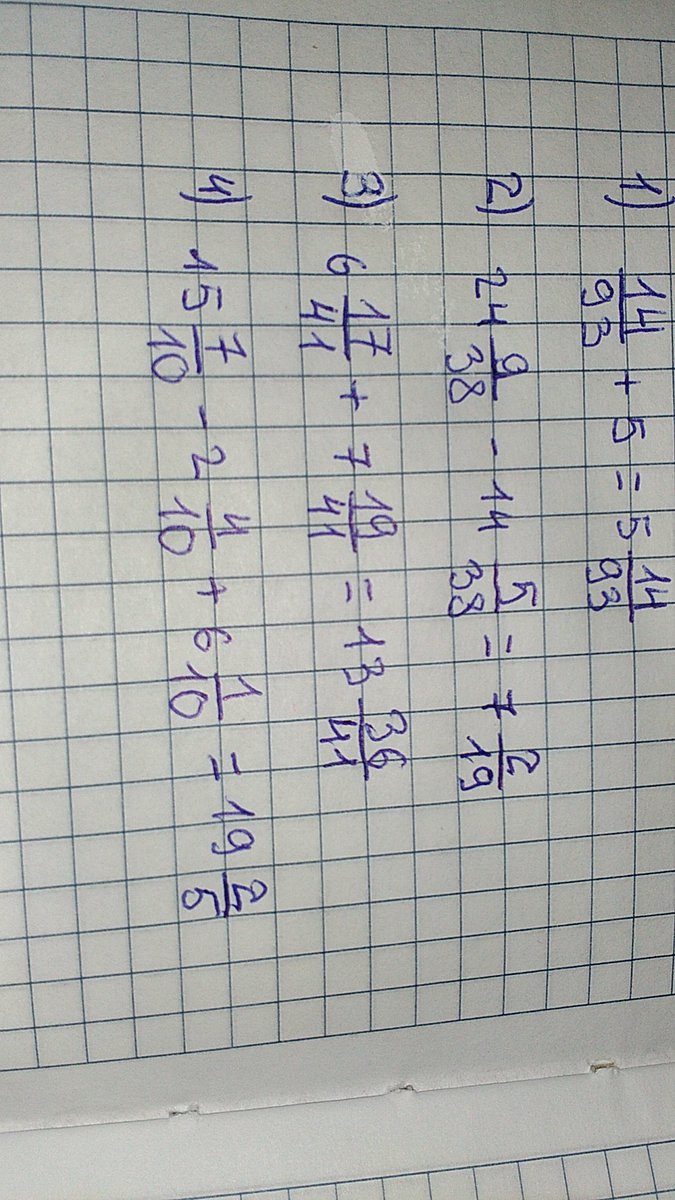 1) 14/93 + 5 = 5 14/93
2) 24 9/38 - 14 5/38 = 7 2/19
3) 6 17/41 + 7 19/41 = 13 36/41
4) 15 7/10 - 2 4/10 + 6 1/10 = 19 2/5